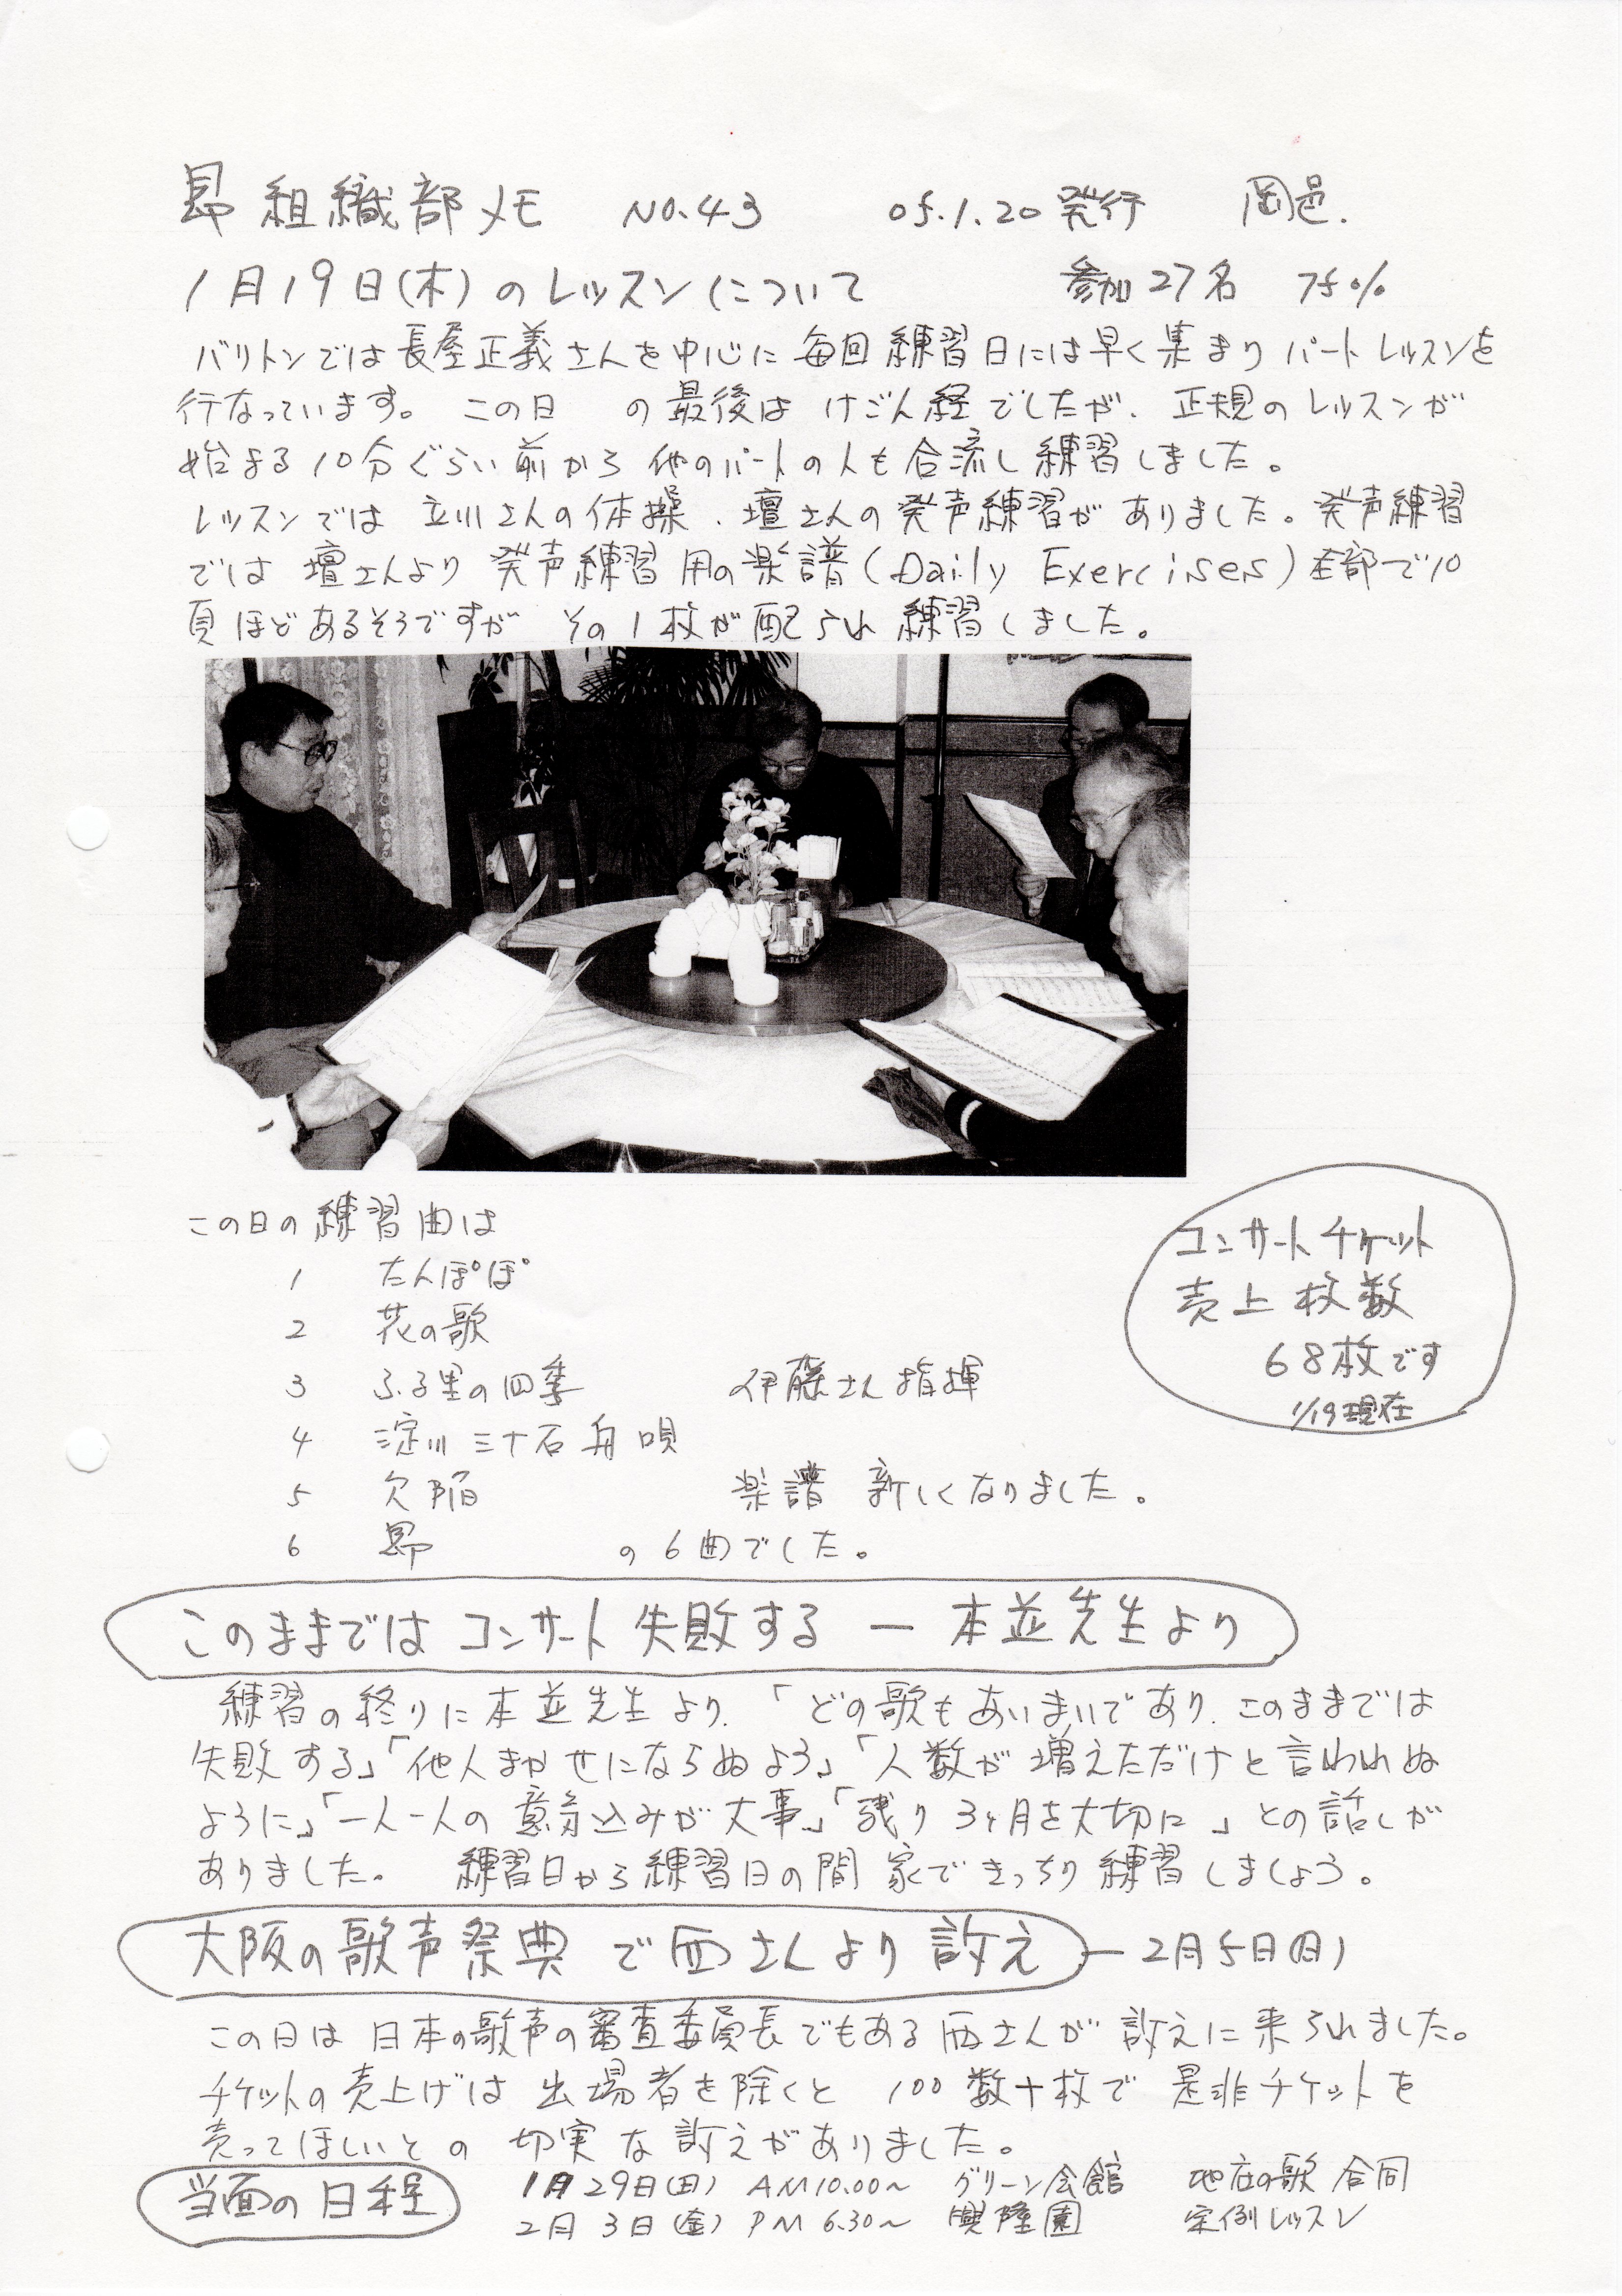 昴組織部メモ No.43 05.1.20発行 岡邑.
1月19日(木)のレッスンについて 参加27名 75%
バリトンでは長屋正義さんを中心に毎回練習日には早く集まりパートレッスンを
行なっています。この日 の最後はけごん経でしたが、正規のレッスンが
始まる10分ぐらい前から他のパートの人も合流し練習しました。
レッスンでは立川さんの体操、壇さんの発声練習がありました。発声練習
では壇さんより発声練習用の楽譜(Daily Exercises)全部で10
頁ほどあるそうですがその1枚が配られ練習しました。
この日の練習曲は
1 たんぽぽ
2 花の歌
3 ふる里の四季 伊藤さん指揮
4 淀川三十石舟唄
5 欠陥 楽譜 新しくなりました。
6 昴 の6曲でした。
コンサートチケット
売上枚数
68枚です
1/19現在
このままではコンサート失敗する ー 本並先生より
練習の終りに本並先生より、「どの歌もあいまいであり、このままでは
失敗する」「他人まかせにならぬよう」「人数が増えただけと言われぬ
ように」「一人一人の意気込みが大事」「残り3ヶ月を大切に」との話しが
ありました。 練習日から練習日の間家できっちり練習しましょう。
大阪の歌声祭典で西さんより訴え ー2月5日(日)
この日は日本の歌声の審査委員長でもある西さんが訴えに来られました。
チケットの売上げは出場者を除くと100数十枚で是非チケットを
売ってほしいとの切実な訴えがありました。
当面の日程 1月29日(日) AM10.00~ グリーン会館 地底の歌合同
2月3日(金) PM6.30~ 興隆園 定例レッスン